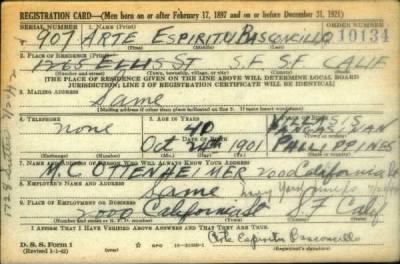 REGISTRATION CARD—(Men born on or after February 17, 1897 and on or before December 31, 1921)
SERIAL NUMBER 1. NAME (Print) ORDER NUMBER
907 ARTE ESPIRITU BASCONCILLO 10134
(First) (Middle) (Last)
2. PLACE OF RESIDENCE (Print)
1265 ELLIS ST S.F. S.F. CALIF
(Number and street) (Town, township, village, or city) (County) (State)
[THE PLACE OF RESIDENCE GIVEN ON THE LINE ABOVE WILL DETERMINE LOCAL BOARD
JURISDICTION; LINE 2 OF REGISTRATION CERTIFICATE WILL BE IDENTICAL]
3. MAILING ADDRESS
Same
[Mailing address if other than place indicated on line 2. If same insert word same]
4. TELEPHONE 5. AGE IN YEARS
none 40
DATE OF BIRTH
Oct 24th 1901 PHILIPPINES
7. NAME AND ADDRESS OF PERSON WHO WILL ALWAYS KNOW YOUR ADDRESS
M.C. OTTENHEIMER 2000 California
8. EMPLOYER'S NAME AND ADDRESS
Same
9. PLACE OF EMPLOYMENT OR BUSINESS
2000 California St S F Calif
(Number and street or R. F. D. number) (Town) (County) (State)
I AFFIRM THAT I HAVE VERIFIED ABOVE ANSWERS AND THAT THEY ARE TRUE.
D. S. S. Form 1
(Revised 1-1-42) GPO
Arte Espiritu Basconcillo